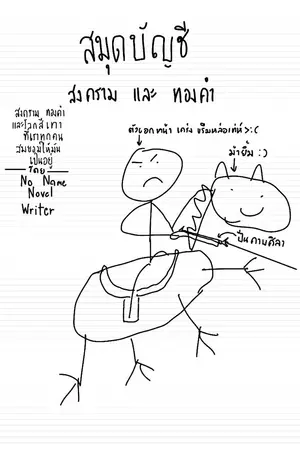 สมุดบัญชี
สงคราม และ ทองคำ
สงคราม ทองคำ
และโลกสีเทา
ที่เราทุกคน
สมยอมให้มัน
เป็นอยู่
โดย
No Name
Novel
Writer
ตัวเอกหน้า เก่ง ขรึมหล่อเท่ห์ >:(
ม้ายิ้ม :)
ปืนคาบศิลา